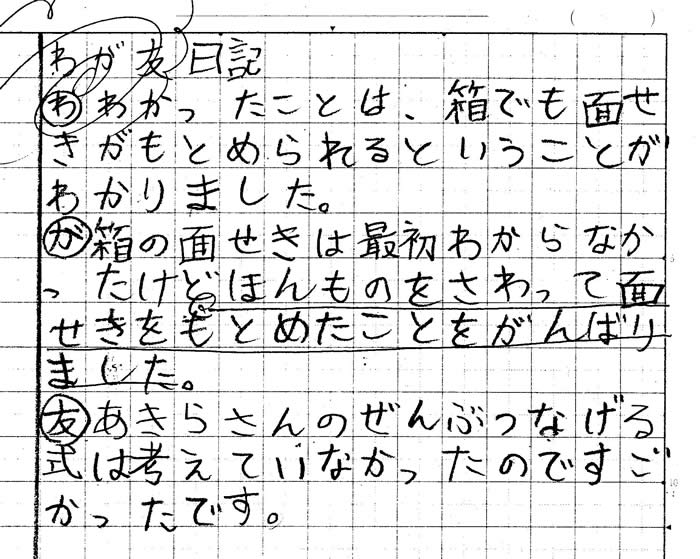 わが友日記
わわかったことは、箱でも面せ
きがもとめられるということが
わかりました。
が箱の面せきは最初わからなか
ったけどほんものをさわって面
せきをもとめたことをがんばり
ました。
友あきらさんのぜんぶつなげる
式は考えていなかったのですご
かったです。